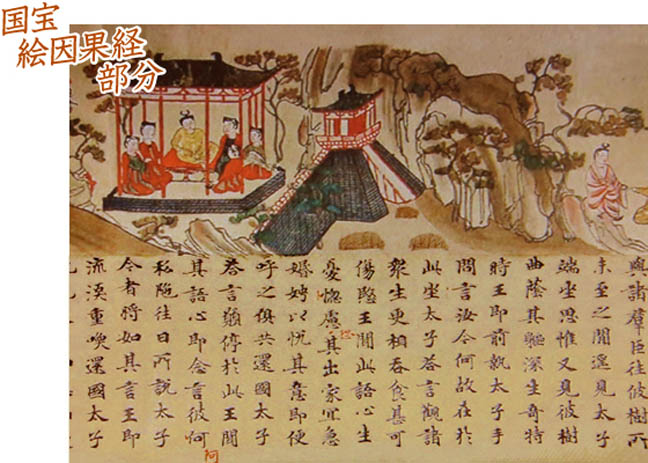 国宝
絵因果経
部分
與諸羣臣往彼樹所
未至之間遥見太子
端坐思惟又見彼樹
曲蔭其軀深生奇特
時王即前執太子手
問言汝今何故在於
此坐太子荅言觀諸
衆生更相吞食甚可
傷愍王聞此語心生
憂惱慮其出家宜急
婚娉以悅其意即便
呼之俱共還國太子
荅言願停於此王聞
其語心即念言彼何
阿
私陁往日所說太子
今者將如其言王即
流淚重喚還國太子